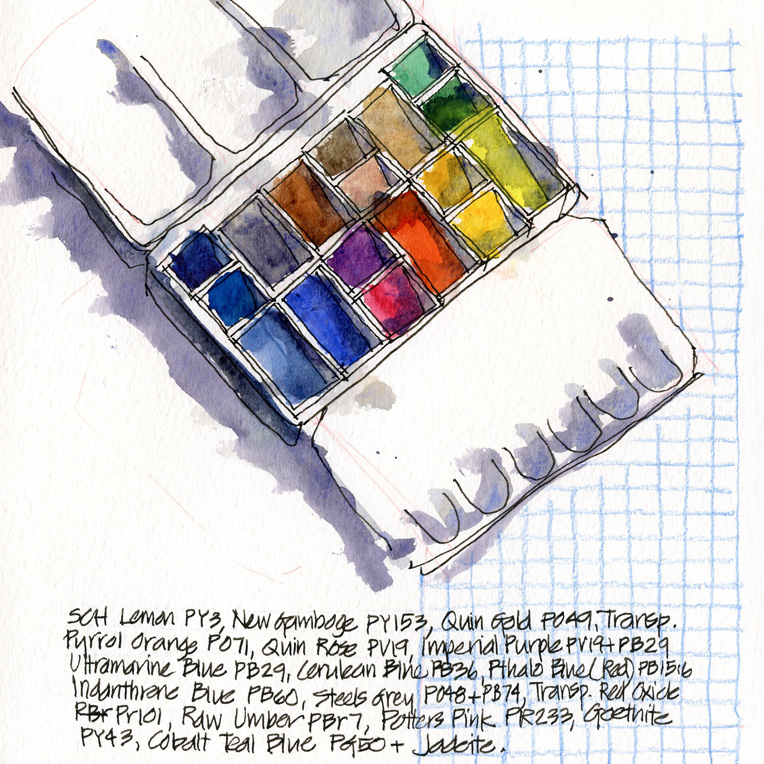 SCH Lemon PY3, New Gamboge PY153, Quin Gold PO49, Transp.
Pyrrol Orange PO71, Quin Rose PV19, Imperial Purple PV19+PB29
Ultramarine Blue PB29, Cerulean Blue PB36, Pthalo Blue (Red) PB15:6
Indanthrone Blue PB60, Steels Grey PO48+PB74, Transp. Red Oxide
PBr Pr101, Raw Umber PBr7, Potters Pink PR233, Goethite
PY43, Cobalt Teal Blue PG50 + Jadeite.